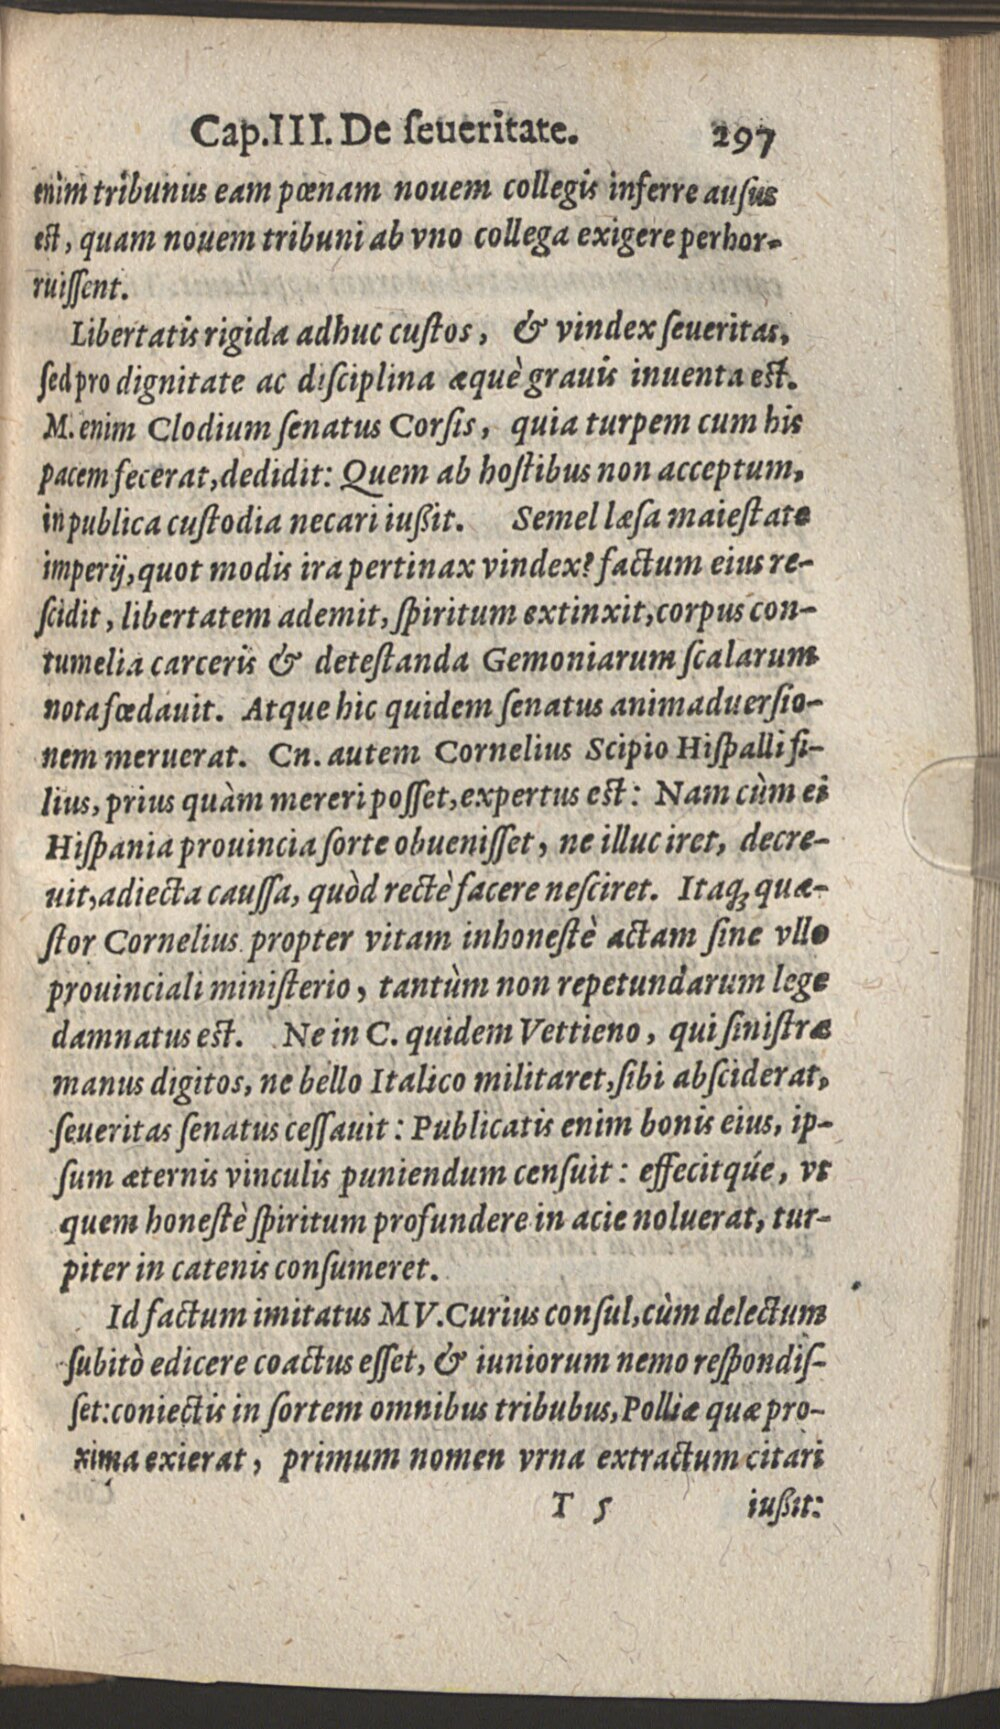 Cap.III. De ſeueritate. 297
enim tribunus eam pœnam nouem collegis inferre auſus
est, quam nouem tribuni ab vno collega exigere perhor-
ruiſſent.
Libertatis rigida adhuc cuſtos, & vindex ſeueritas,
ſed pro dignitate ac diſciplina æquè grauis inuenta est.
M. enim Clodium ſenatus Corſis, quia turpem cum his
pacem fecerat, dedidit: Quem ab hoſtibus non acceptum,
in publica cuſtodia necari iußit. Semel læſa maieſtate
imperij, quot modis ira pertinax vindex? factum eius re-
ſcidit, libertatem ademit, ſpiritum extinxit, corpus con-
tumelia carceris & deteſtanda Gemoniarum ſcalarum
nota fœdauit. Atque hic quidem ſenatus animaduerſio-
nem meruerat. Cn. autem Cornelius Scipio Hiſpalli fi-
lius, prius quàm mereri poſſet, expertus est: Nam cùm ei
Hiſpania prouincia ſorte obueniſſet, ne illuc iret, decre-
uit, adiecta cauſſa, quòd rectè facere neſciret. Itaq; quæ-
ſtor Cornelius propter vitam inhoneſtè actam ſine vllo
prouinciali miniſterio, tantùm non repetundarum lege
damnatus est. Ne in C. quidem Vettieno, qui ſiniſtræ
manus digitos, ne bello Italico militaret, ſibi abſciderat,
ſeueritas ſenatus ceſſauit: Publicatis enim bonis eius, ip-
ſum æternis vinculis puniendum cenſuit: effecitqúe, vt
quem honeſtè ſpiritum profundere in acie noluerat, tur-
piter in catenis conſumeret.
Id factum imitatus MV. Curius conſul, cùm delectum
ſubitò edicere coactus eſſet, & iuniorum nemo reſpondiſ-
ſet: coniectis in ſortem omnibus tribubus, Polliæ quæ pro-
xima exierat, primum nomen vrna extractum citari
T 5 iußit: